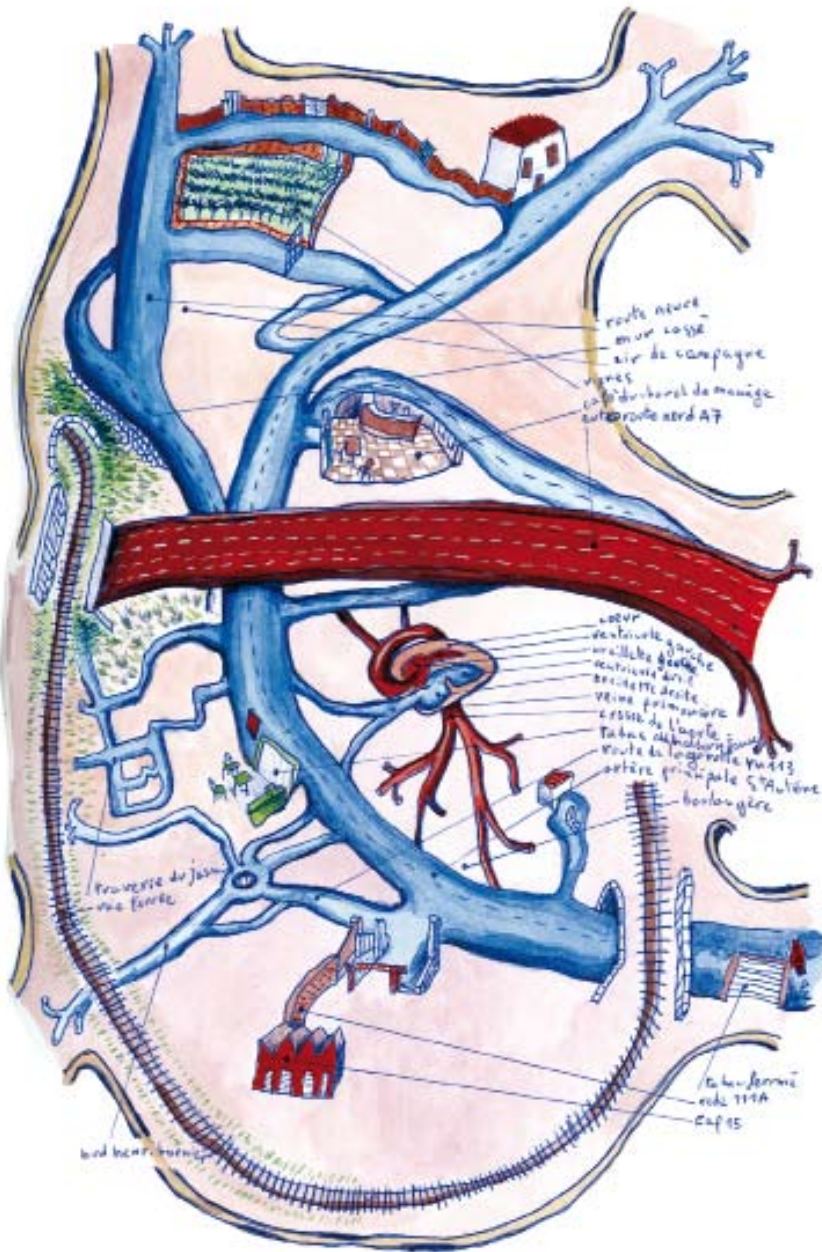 route neuve
mur cassé
air de campagne
vignes
café du bord de manège
autoroute nord A7
coeur
ventricule gauche
oreillette gauche
ventricule droit
oreillette droite
veine pulmonaire
crosse de l'aorte
tabac
route de la gavotte RN 113
artère principale St Antoine
boulangère
traverse du
rue
tabac fermé
111A
cap 15
bvd henri